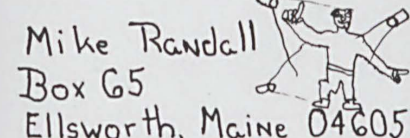 Mike Randall
Box 65
Ellsworth, Maine 04605